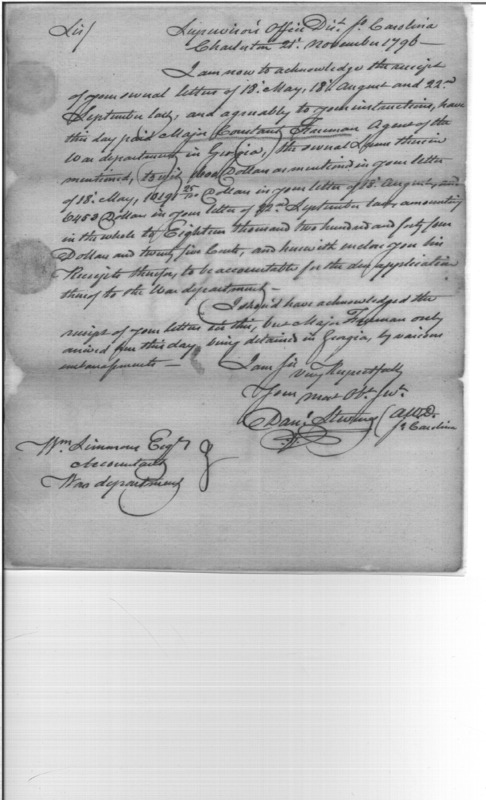 Sir/ Supervisor's Office Dist. So. Carolina
Charleston 21st. November 1796 —
I am now to acknowledge the receipt
of your several letters of 18th. May, 18th. August and 22nd.
September last, and agreeably to your instructions, have
this day paid Major Constant Freeman Agent of the
War department in Georgia, the several Sums therein
mentioned, to wit, Dollars as mentioned in your letter
of 18th. May, Dollars in your letter of 18th. August, and
6453 Dollars in your letter of 22nd. September last, amounting
in the whole to Eighteen thousand two hundred and forty four
Dollars and twenty five Cents, and herewith enclose you his
Receipts therefor, to be accountable for the due application
thereof to the War department —
I should have acknowledged the
receipt of your letters ere this, but Major Freeman only
arrived here this day, being detained in Georgia, by various
embarrassments —
I am Sir
Very Respectfully
Your most Obt. Svt.
Danl. Stevens
So Carolina
Wm. Simmons Esqr.
Accountant
War department